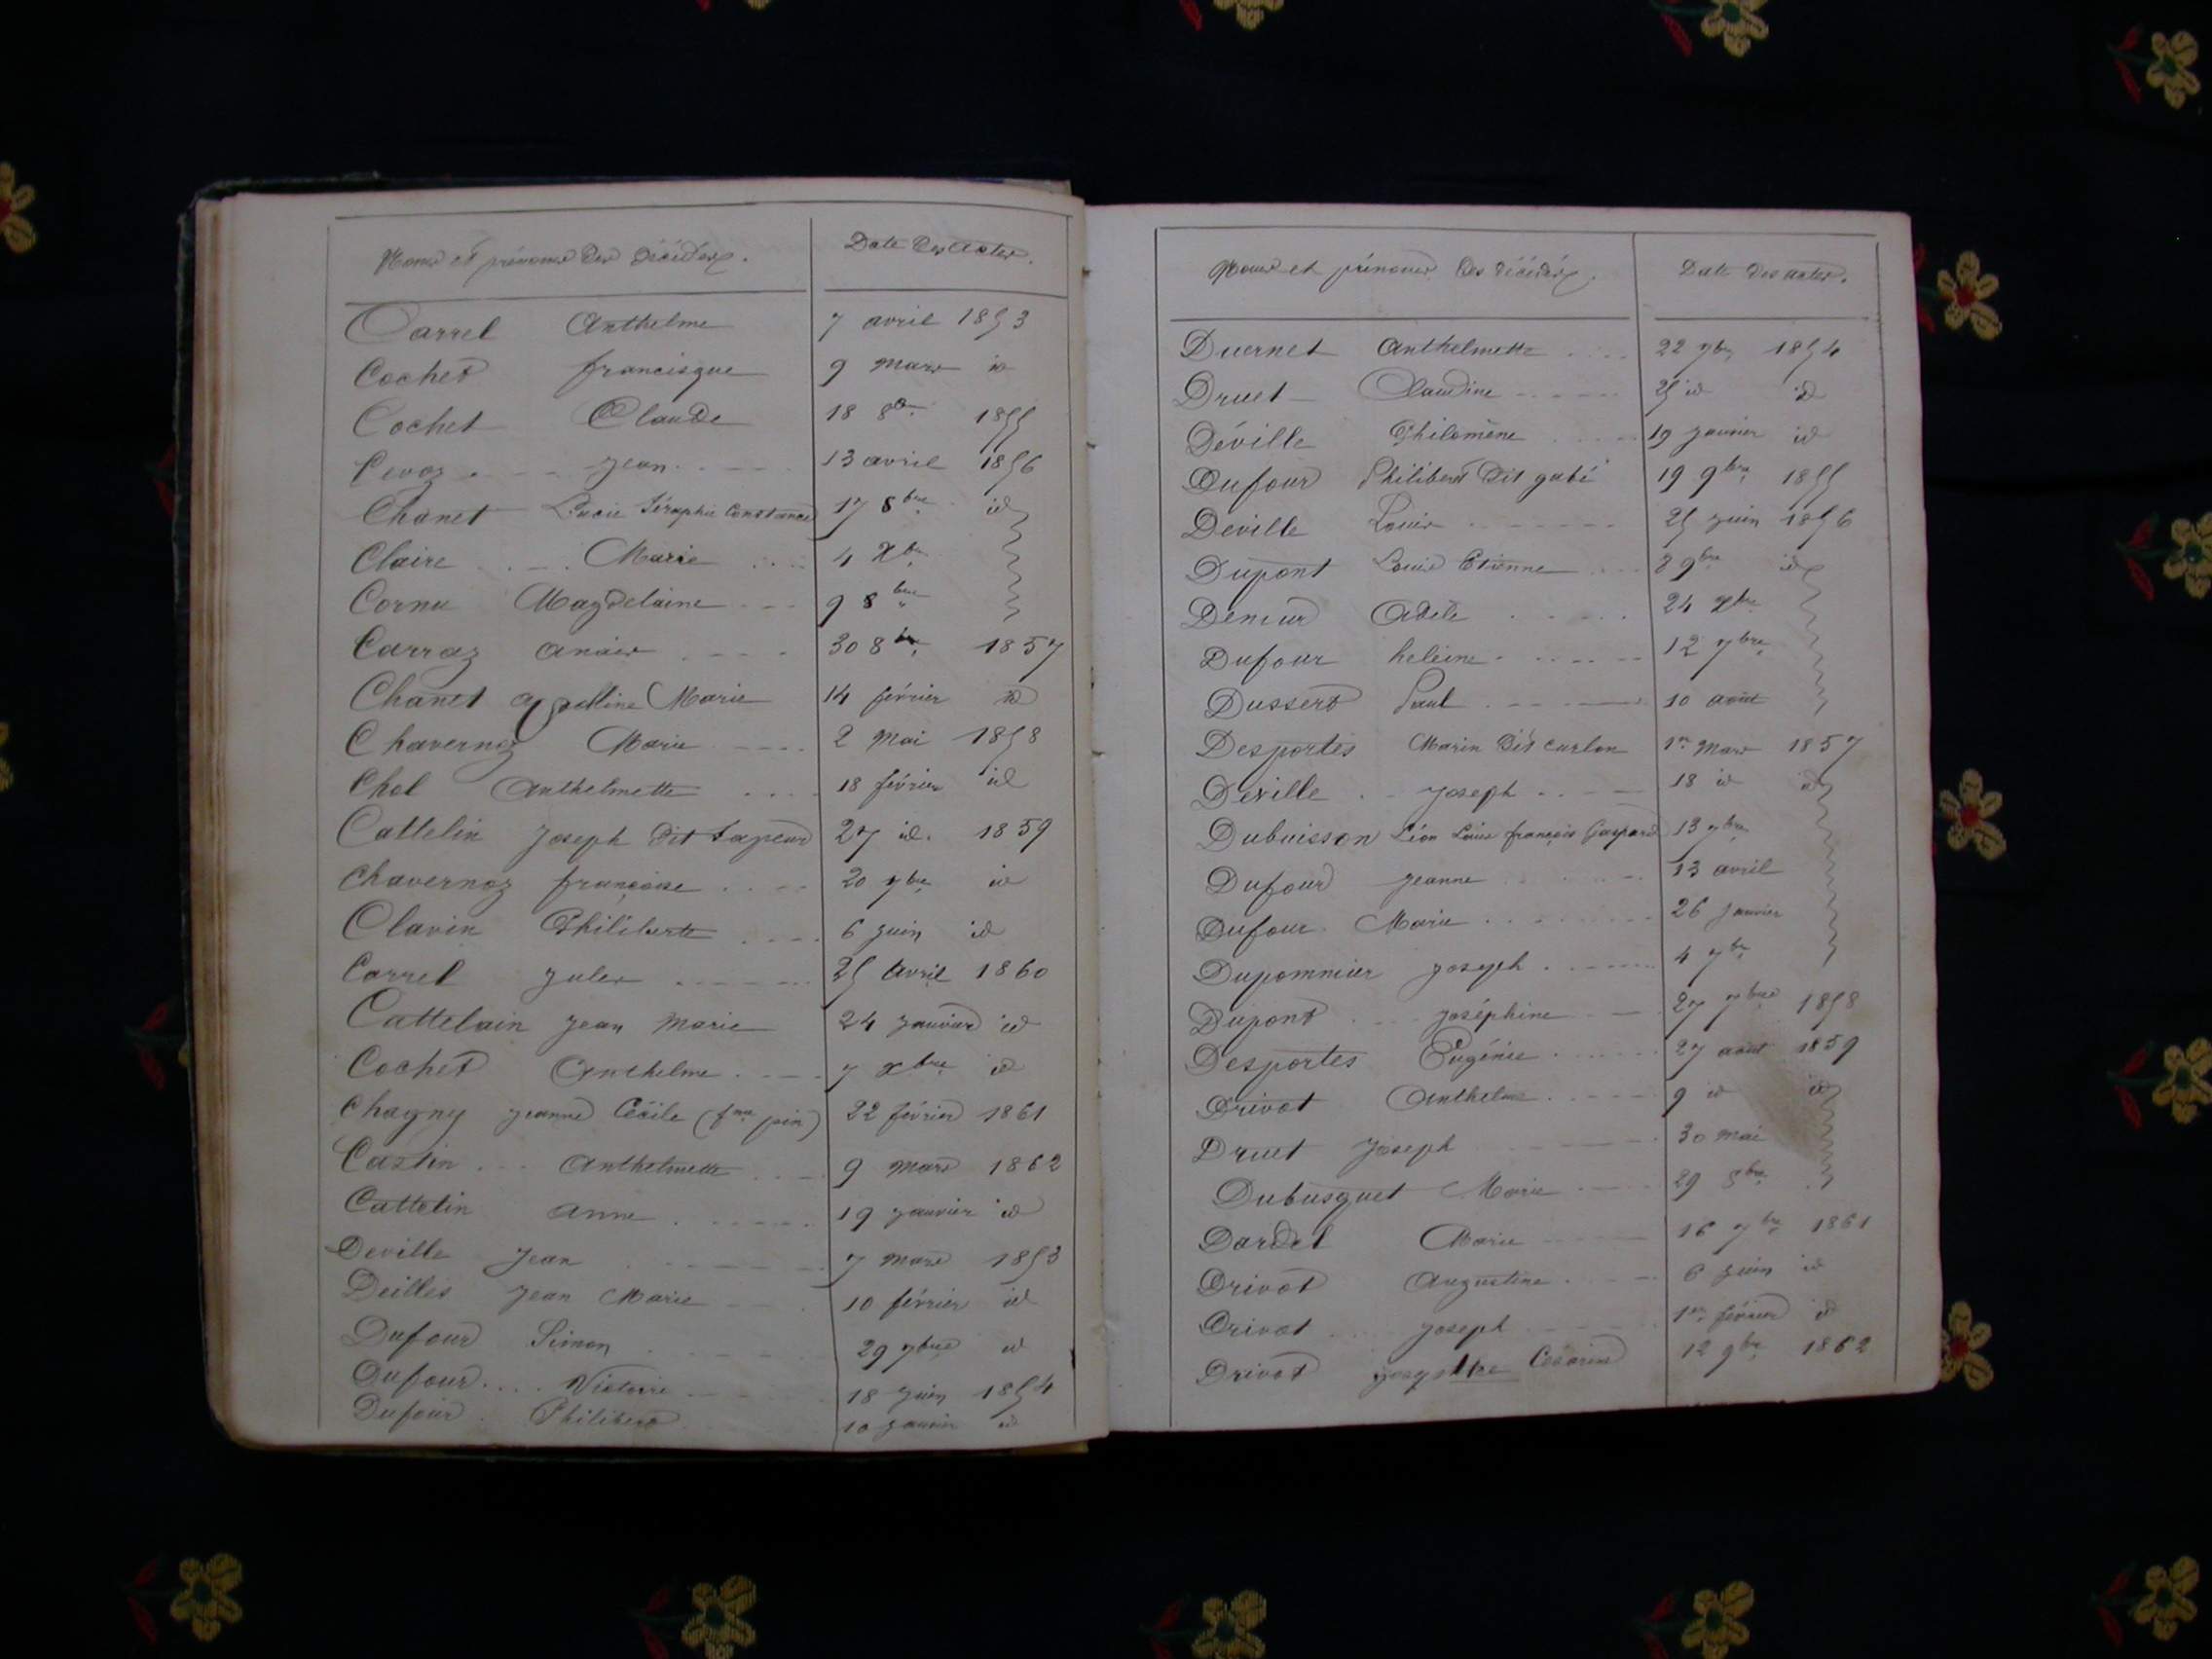 Noms et prénoms des décédés. Date des actes.
Carrel Anthelme 7 avril 1853
Cochet francisque 9 Mars id
Cochet Claude 18 8bre 1855
Cevoz Jean 13 avril 1856
Chanet Lucie Séraphie Constance 17 8bre id
Claire Marie 4 Xbre
Cornu Magdelaine 9 8bre
Carraz anaïs 30 8bre 1857
Chanet Apolline Marie 14 février id
Chavernoz Marie 2 Mai 1858
Chol Anthelmette 18 février id
Cattelin Joseph dit Sapeur 27 id. 1859
Chavernoz françoise 20 7bre id
Clavin Philiberte 6 juin id
Carrel Jules 25 avril 1860
Cattelain Jean Marie 24 janvier id
Cochet Anthelme 7 Xbre id
Chagny Jeanne Cécile (fme pin) 22 février 1861
Castin Anthelmette 9 Mars 1862
Cattelin anne 19 janvier id
Deville Jean 7 Mars 1853
Deilles Jean Marie 10 février id
Dufour Simon 29 7bre id
Dufour Victoire 18 juin 1854
Dufour Philibert 10 janvier id
Noms et prénoms des décédés. Date des actes.
Duernet Anthelmette 22 7bre 1854
Druet Claudine 25 id id
Déville Philomène 19 janvier id
Dufour Philibert dit gabé 19 9bre 1855
Deville Louis 25 juin 1856
Dupont Louis Etienne 8 9bre id
Demur Adèle 24 Xbre
Dufour heleine 12 7bre
Dussert Paul 10 août
Desportes Marin dit curlon 1er Mars 1857
Deville Joseph 18 id id
Dubuisson Léon Louis françois Gaspard 13 7bre
Dufour Jeanne 13 avril
Dufour Marie 26 janvier
Dupommier Joseph 4 7bre
Dupont Joséphine 27 7bre 1858
Desportes Eugénie 27 août 1859
Drivot Anthelme 9 id id
Druet Joseph 30 Mai
Dubusquet Marie 29 8bre
Dardel Marie 16 7bre 1861
Drivot Augustine 6 juin id
Drivot Joseph 1er février id
Drivot Césarine 12 9bre 1862